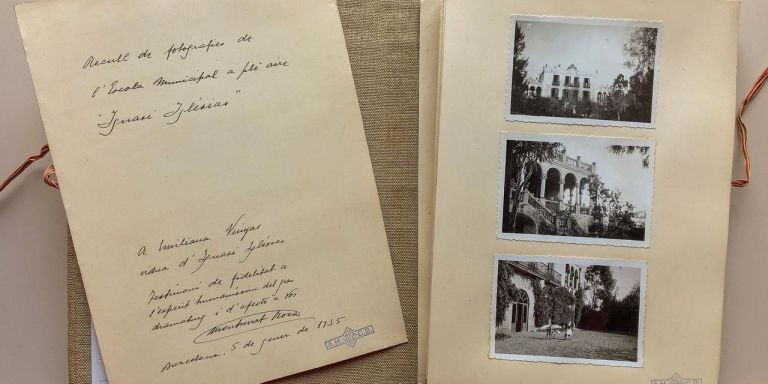 Recull de fotografies de
l'Escola Municipal a ple aire
"Ignasi Iglésias"
A Emiliana Vinyas
vídua d'Ignasi Iglésias
Testimoni de fidelitat a
l'esperit humaníssim del gran
dramaturg i d'afecte a Vos
Montserrat Roca
Barcelona, 5 de gener de 1935
A.H. C.B.